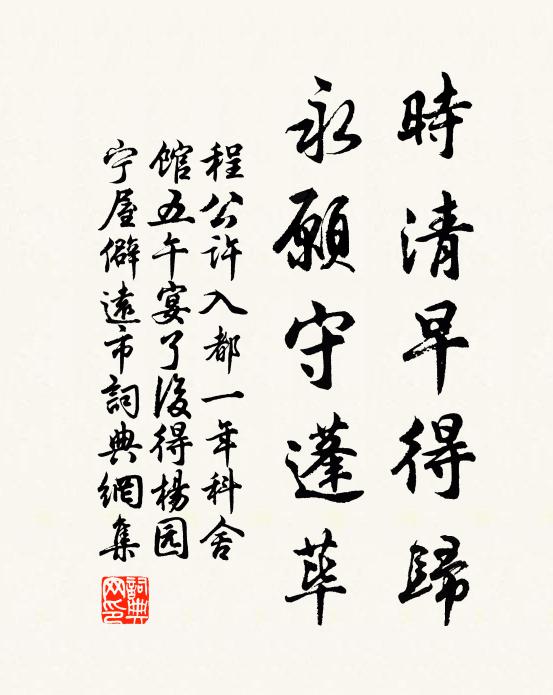 時清早得歸
永願守蓬蓽
程公許入都一年科舍
馆五午宴了後得楊园
宁屋僻遠市詞典網集
詞典网印